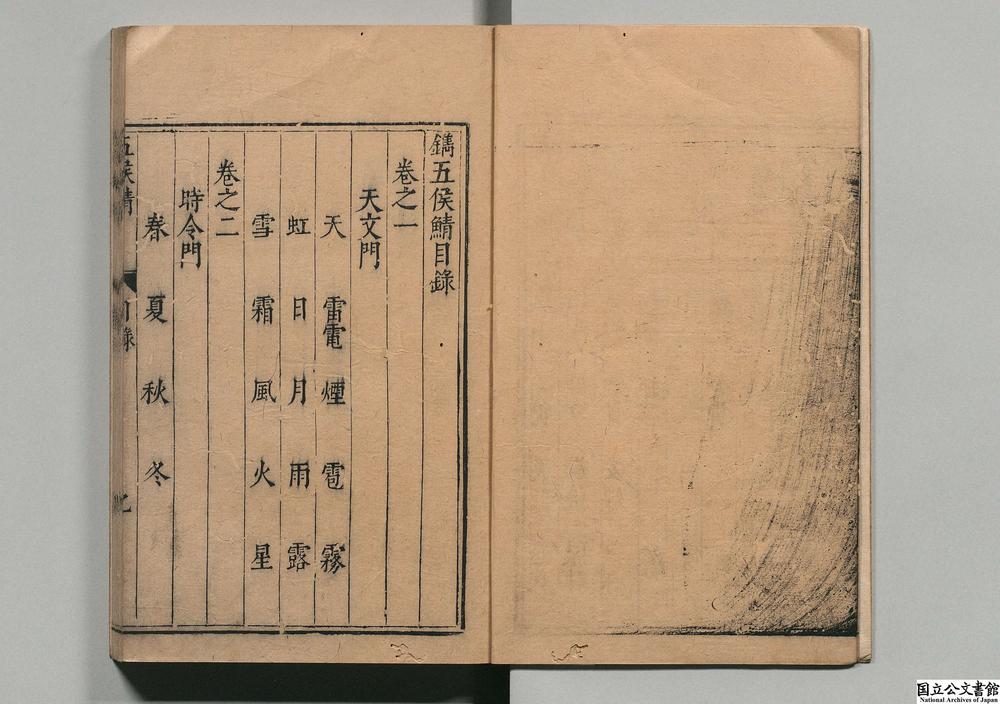 鐫五侯鯖目錄
卷之一
天文門
天 雷電 煙 雹 霧
虹 日 月 雨 露
雪 霜 風 火 星
卷之二
時令門
春 夏 秋 冬
五侯鯖
目錄
国立公文書館
National Archives of Japan